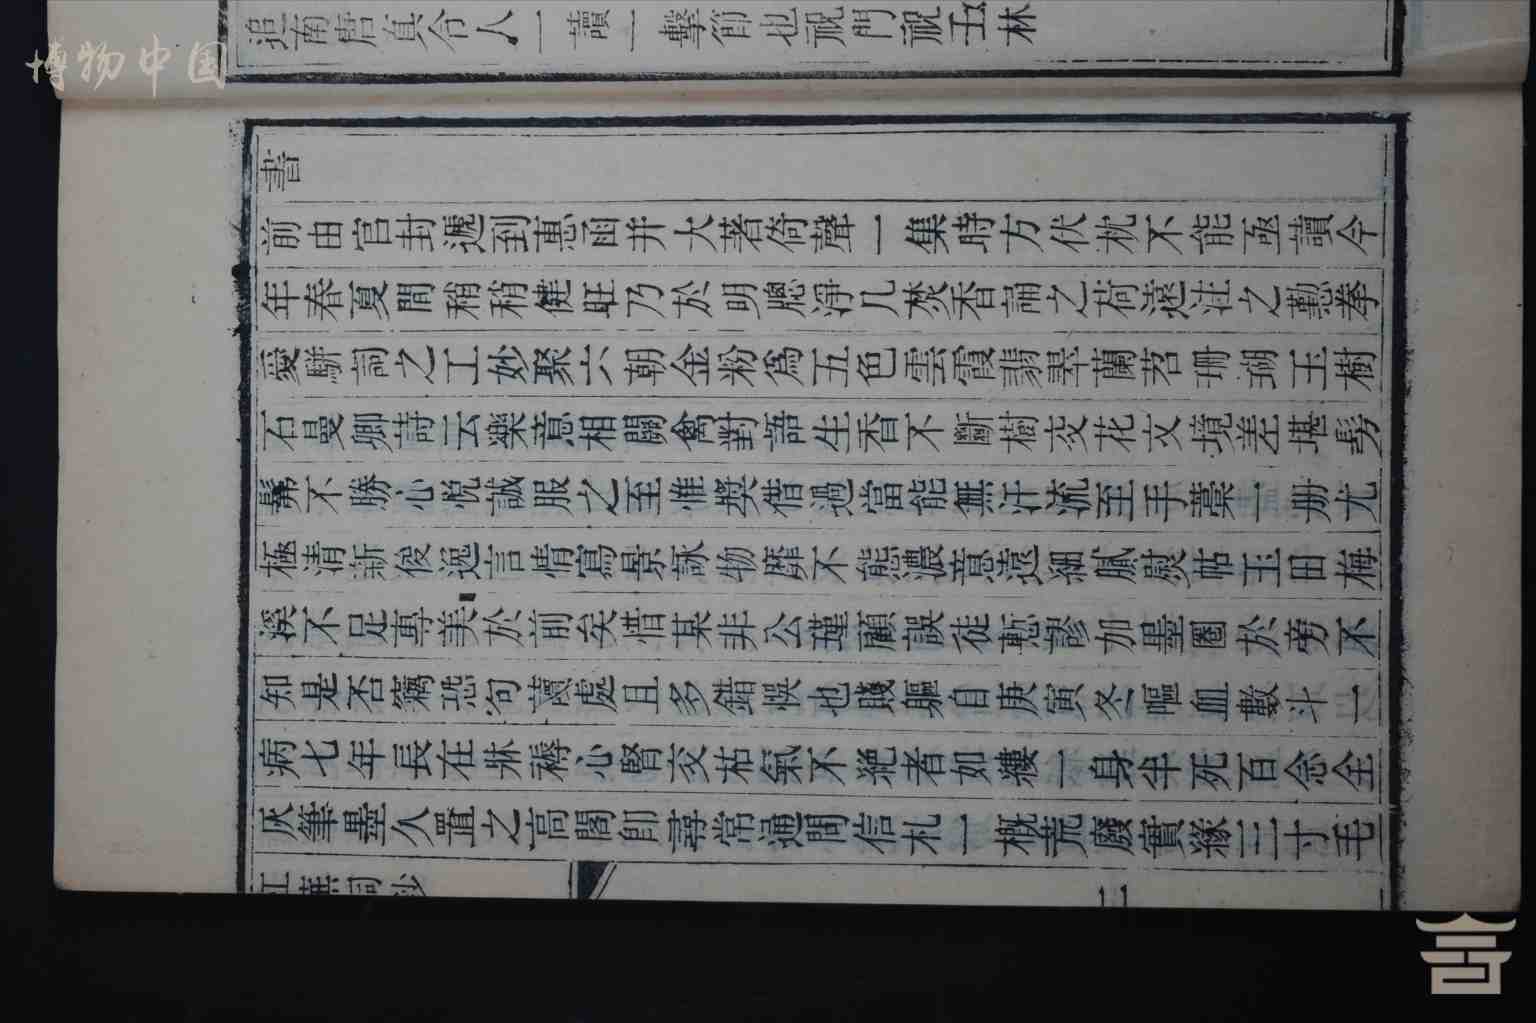 博物中国
追南唐真令人一讀一擊節也門林
書
前由官封遞到惠函并大著倚聲一集時方伏枕不能亟讀今
年春夏間稍稍健旺乃於明牕淨几焚香誦之荷遠注之懃拳
愛駢詞之工妙聚六朝金粉爲五色雲霞翡翠蘭苕珊瑚玉樹
石曼卿詩云樂意相關禽對語生香不斷樹交花文境差堪髣
髴不勝心悅誠服之至惟奬借過當能無汗流至手藁一册尤
極清新俊逸言情寫景詠物靡不態濃意遠細膩熨帖玉田梅
溪不足專美於前矣惜某非公瑾顧誤徒慙謬加墨圈於旁不
知是否竊恐句讀處且多錯悞也賤軀自庚寅冬嘔血數斗一
病七年長在牀褥心腎交枯氣不絕者如縷一身半死百念全
灰筆墨久置之高閣卽尋常通問信札一概荒廢實緣三寸毛